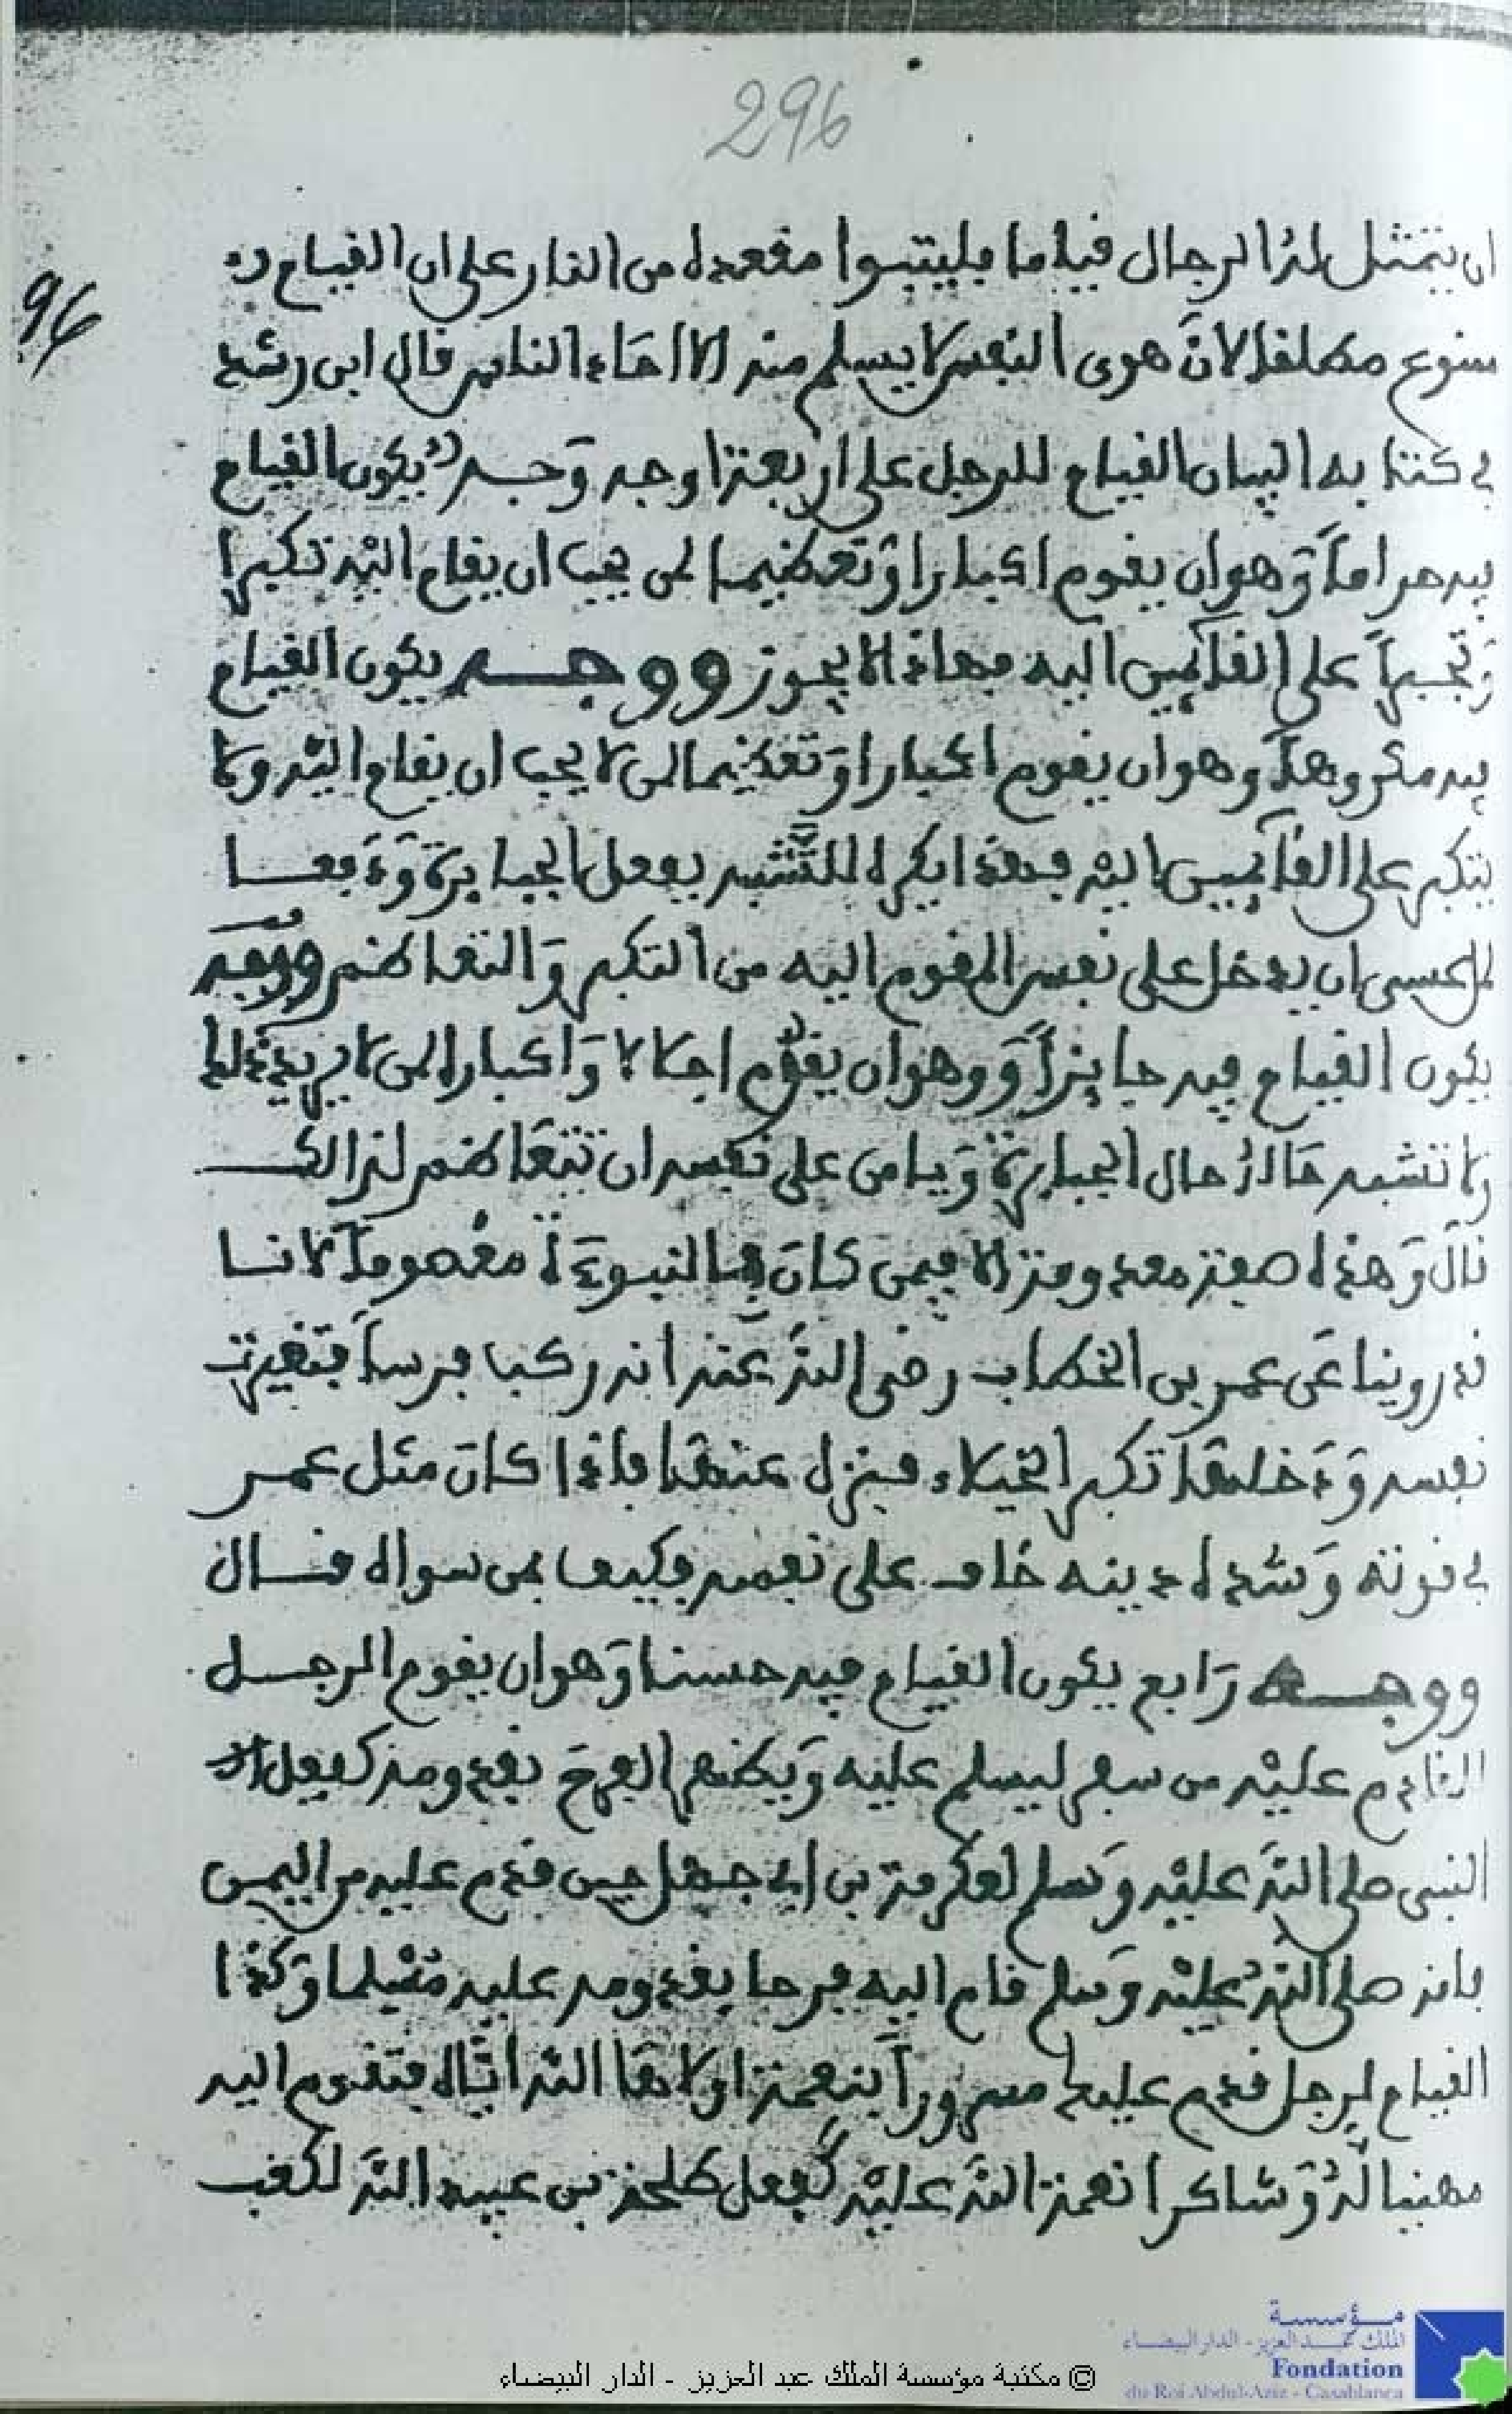 296
96
ان يتمثل له الرجال قياما فليتبوا مقعده من النار على ان القيام
ممنوع مطلقا لان هوى النفس لا يسلم منه الا احاد الناس قال ابن رشد
في كتابه البيان القيام للرجل على اربعة اوجه وجه يكون القيام
فيه حراما وهو ان يقوم اكبارا وتعظيما لمن يحب ان يقام اليه تكبرا
وتجبرا على القائمين اليه فهاذا لا يجوز ووجه يكون القيام
فيه مكروها وهو ان يقوم اكبارا وتعظيما لمن لا يحب ان يقام اليه ولا
يتكبر على القائمين اليه فهذا يكره للتشبه بفعل الجبابرة و
يدخل على نفس المقوم اليه من التكبر والتعاظم ووجه
يكون القيام فيه جائزا وهو ان يقوم اجلالا واكبارا لمن لا يريد ذلك
ولا تشبه حاله حال الجبابرة ويامن على نفسه ان تتعاظم لذالك
قال وهذه صفة معدومة الا فيمن كان بالنبوءة معصوما لانا
قد روينا عن عمر بن الخطاب رضي الله عنه انه ركب فرسا فتغيرت
نفسه ودخلها تكبر الخيلاء فنزل عنها فاذا كان مثل عمر
في قوته وشدة دينه خاف على نفسه فكيف بمن سواه قال
ووجه رابع يكون القيام فيه حسنا وهو ان يقوم الرجل
القادم عليه من سفر ليسلم عليه ويظهر الفرح بقدومه كفعل
النبي صلى الله عليه وسلم لعكرمة بن ابي جهل حين قدم عليه من اليمن
فانه صلى الله عليه وسلم قام اليه فرحا بقدومه عليه مسلما وكذا
القيام لرجل قدم عليك مسرورا بنعمة اولاها الله اياه فتقوم اليه
مهنيا له وشاكرا نعمة الله عليه كفعل طلحة بن عبيد الله لكعب
مؤسسة
الملك عبد العزيز - الدار البيضاء
Fondation
du Roi Abdul-Aziz - Casablanca
© مكتبة مؤسسة الملك عبد العزيز - الدار البيضاء